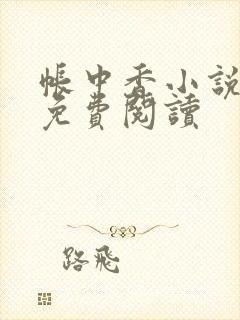 帳中香小說
免費閱讀
路飛